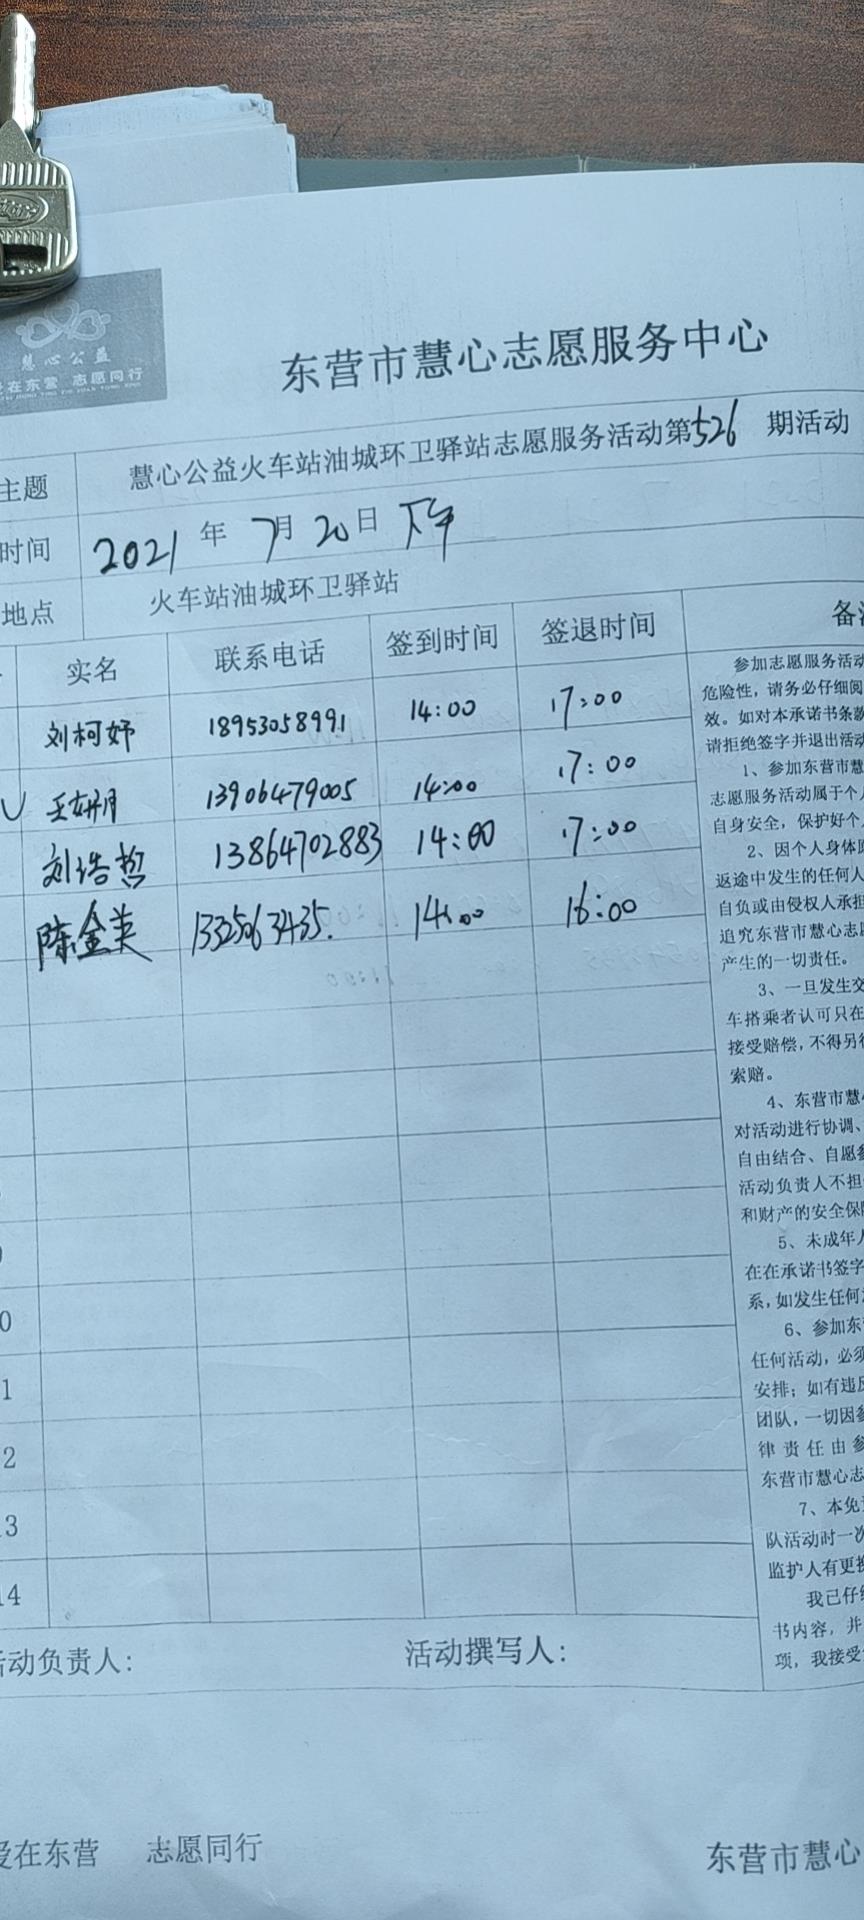 慧心公益
在东营 志愿同行
东营市慧心志愿服务中心
主题 慧心公益火车站油城环卫驿站志愿服务活动第526期活动
时间 2021年7月20日 下午
地点 火车站油城环卫驿站
实名 联系电话 签到时间 签退时间 备
刘柯妤 18953058991 14:00 17:00
王妍月 13906479005 14:00 17:00
刘浩哲 13864702883 14:00 17:00
陈金英 14:00 16:00
参加志愿服务活动
危险性，请务必仔细阅
效。如对本承诺书条款
请拒绝签字并退出活动
1、参加东营市慧
志愿服务活动属于个人
自身安全，保护好个
2、因个人身体原
返途中发生的任何人
自负或由侵权人承担
追究东营市慧心志愿
产生的一切责任。
3、一旦发生交
车搭乘者认可只在
接受赔偿，不得另行
索赔。
4、东营市慧
对活动进行协调、
自由结合、自愿参
活动负责人不担
和财产的安全保障
5、未成年人
在在承诺书签字
系，如发生任何
6、参加东
任何活动，必须
安排；如有违反
团队，一切因参
律责任由参
东营市慧心志
7、本免
队活动时一次
监护人有更换
我已仔细
书内容，并
项，我接受
0
1
2
13
14
活动负责人： 活动撰写人：
爱在东营 志愿同行 东营市慧心